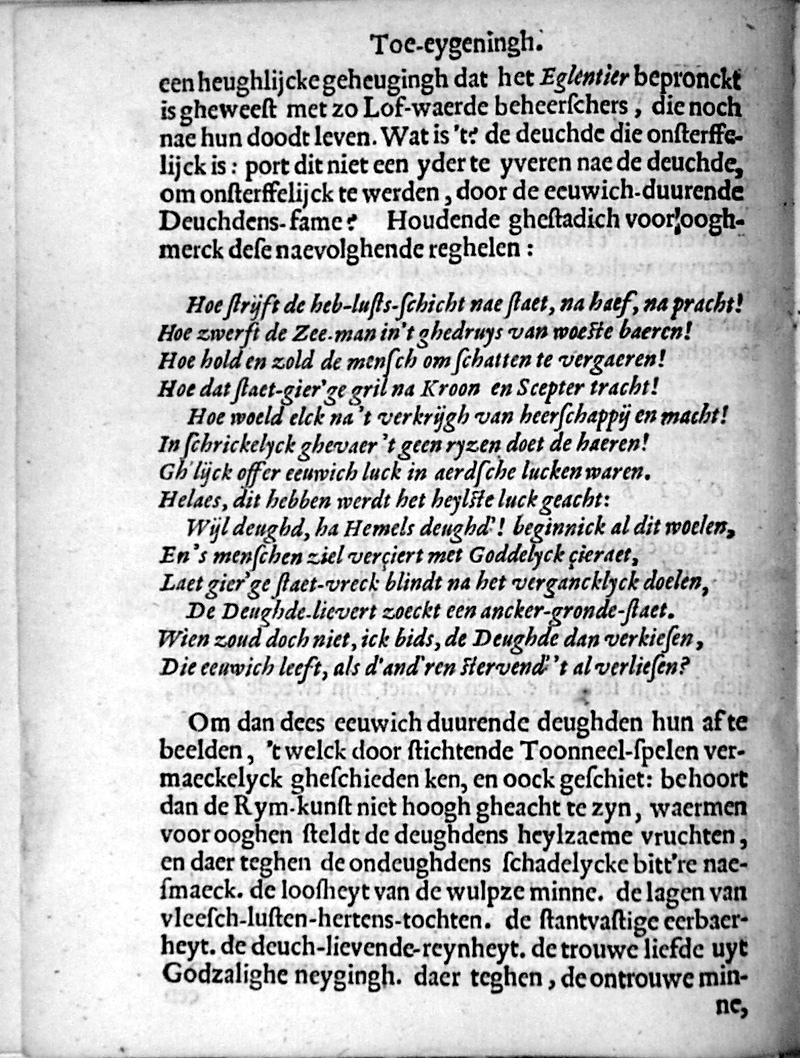 Toe-eygeningh.
een heughlijcke geheugingh dat het Eglentier bepronckt
is gheweeſt met zo Lof-waerde beheerſchers, die noch
nae hun doodt leven. Wat is 't? de deuchde die onſterffe-
lijck is: port dit niet een yder te yveren nae de deuchde,
om onſterffelijck te werden, door de eeuwich-duurende
Deuchdens-fame? Houdende gheſtadich voor oogh-
merck deſe naevolghende reghelen:
Hoe ſtrijft de heb-luſts-ſchicht nae ſtaet, na haef, na pracht!
Hoe zwerft de Zee-man in't ghedruys van woeſte baeren!
Hoe hold en zold de menſch om ſchatten te vergaeren!
Hoe dat ſtaet-gier'ge gril na Kroon en Scepter tracht!
Hoe woeld elck na 't verkrijgh van heerſchappij en macht!
In ſchrickelyck ghevaer 't geen ryzen doet de haeren!
Gh'lijck offer eeuwich luck in aerdſche lucken waren.
Helaes, dit hebben werdt het heylſte luck geacht:
Wijl deughd, ha Hemels deughd'! beginnick al dit woelen,
En 's menſchen ziel verçiert met Goddelyck çieraet,
Laet gier'ge ſtaet-vreck blindt na het vergancklyck doelen,
De Deughde-lievert zoeckt een ancker-gronde-ſtaet.
Wien zoud doch niet, ick bids, de Deughde dan verkieſen,
Die eeuwich leeft, als d'and'ren ſtervend' 't al verlieſen?
Om dan dees eeuwich duurende deughden hun af te
beelden, 't welck door ſtichtende Toonneel-ſpelen ver-
maeckelyck gheſchieden ken, en oock geſchiet: behoort
dan de Rym-kunſt niet hoogh gheacht te zyn, waermen
voor ooghen ſteldt de deughdens heylzaeme vruchten,
en daer teghen de ondeughdens ſchadelycke bitt're nae-
ſmaeck. de looſheyt van de wulpze minne. de lagen van
vleeſch-luſten-hertens-tochten. de ſtantvaſtige eerbaer-
heyt. de deuch-lievende-reynheyt. de trouwe liefde uyt
Godzalighe neygingh. daer teghen, de ontrouwe min-
ne,